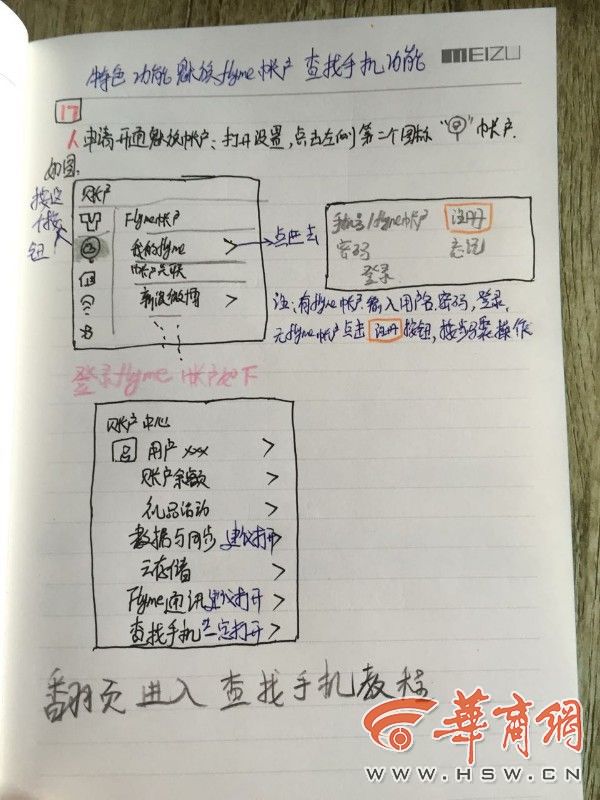 MEIZU
特色功能 魅族flyme帐户 查找手机功能
17
申请开通魅族帐户：打开设置，点击左侧第二个图标“”帐户.
如图.
按这个按钮
账户
Flyme帐户
我的flyme >
帐户关联
新浪微博 >
点进去
手机号/flyme帐户 注册
密码 忘记
登录
注：有flyme帐户输入用户名，密码，登录.
无flyme帐户点击 注册 按钮，按步骤操作
登录flyme帐户如下
账户中心
用户xxx >
账户余额 >
礼品活动 >
数据与同步 建议打开 >
云存储 >
Flyme通讯 建议打开 >
查找手机 一定打开 >
翻页进入 查找手机教程
華商網
WWW.HSW.CN